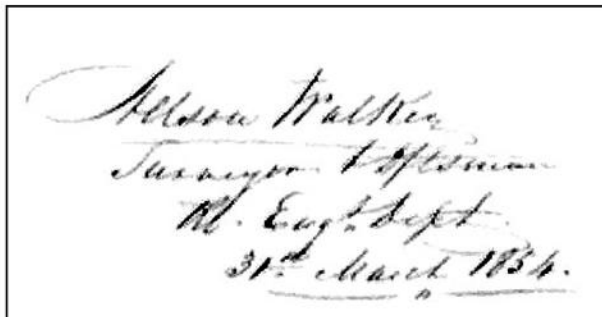 Nelson Walker
Surveyor & Dftsman
Rl. Engr. Dept.
31st March 1854.